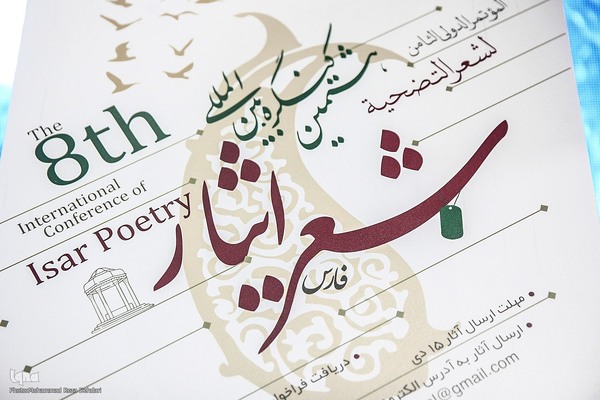 The
8th
International
Conference of
Isar Poetry
المؤتمر الدولي الثامن
لشعر التضحية
هشتمین کنگره بین المللی
شعر ایثار
فارس
• مهلت ارسال آثار ۱۵ دی
• ارسال آثار به آدرس
@gmail.com
• دریافت فراخوان
iqna
Photo:Mohammad Reza